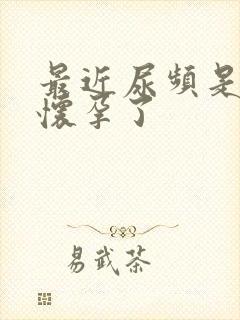 最近尿頻是
懷孕了
易武茶